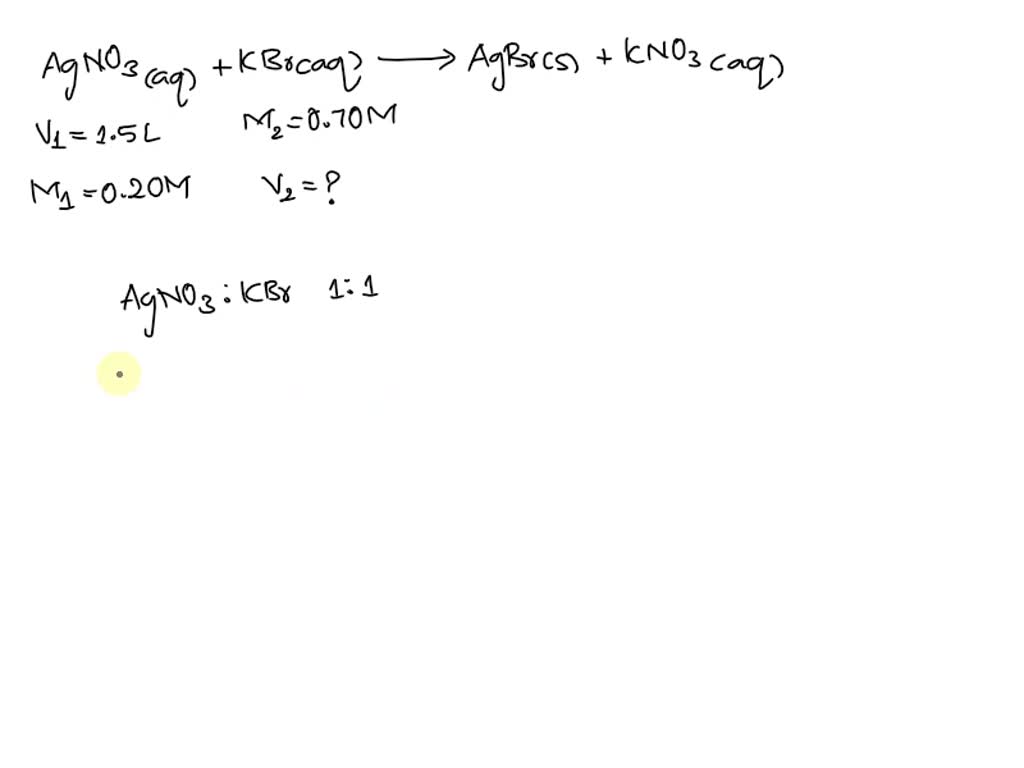 AgNO3(aq) + KBr(aq) ⟶ AgBr(s) + KNO3(aq)
V1 = 1.5L M2 = 0.70M
M1 = 0.20M V2 = ?
AgNO3 : KBr 1:1